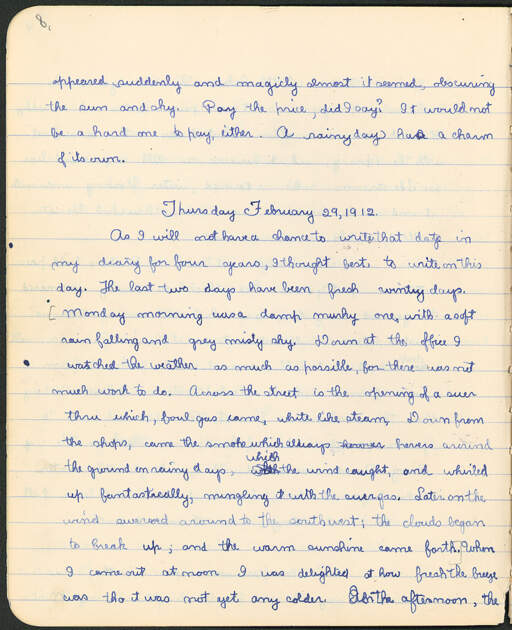 8.
appeared suddenly and magicly almost it seemed, obscuring
the sun and sky. Pay the price, did I say? It would not
be a hard one to pay, either. A rainy day has a charm
of its own.
Thursday February 29, 1912.
As I will not have a chance to write that date in
my diary for four years, I thought best to write on this
day. The last two days have been fresh windy days.
[Monday morning was a damp murky one, with a soft
rain falling and grey misty sky. Down at the office I
watched the weather as much as possible, for there was not
much work to do. Across the street is the opening of a suer
thru which, foul gas came, white like steam, Down from
the shops, came the smoke which always hovers around
the ground on rainy days, which the wind caught, and whirled
up fantastically, mingling it with the suer gas. Later on the
wind swerved around to the southwest; the clouds began
to break up; and the warm sunshine came forth. When
I came out at noon I was delighted at how fresh the breeze
was tho it was not yet any colder. the afternoon, the